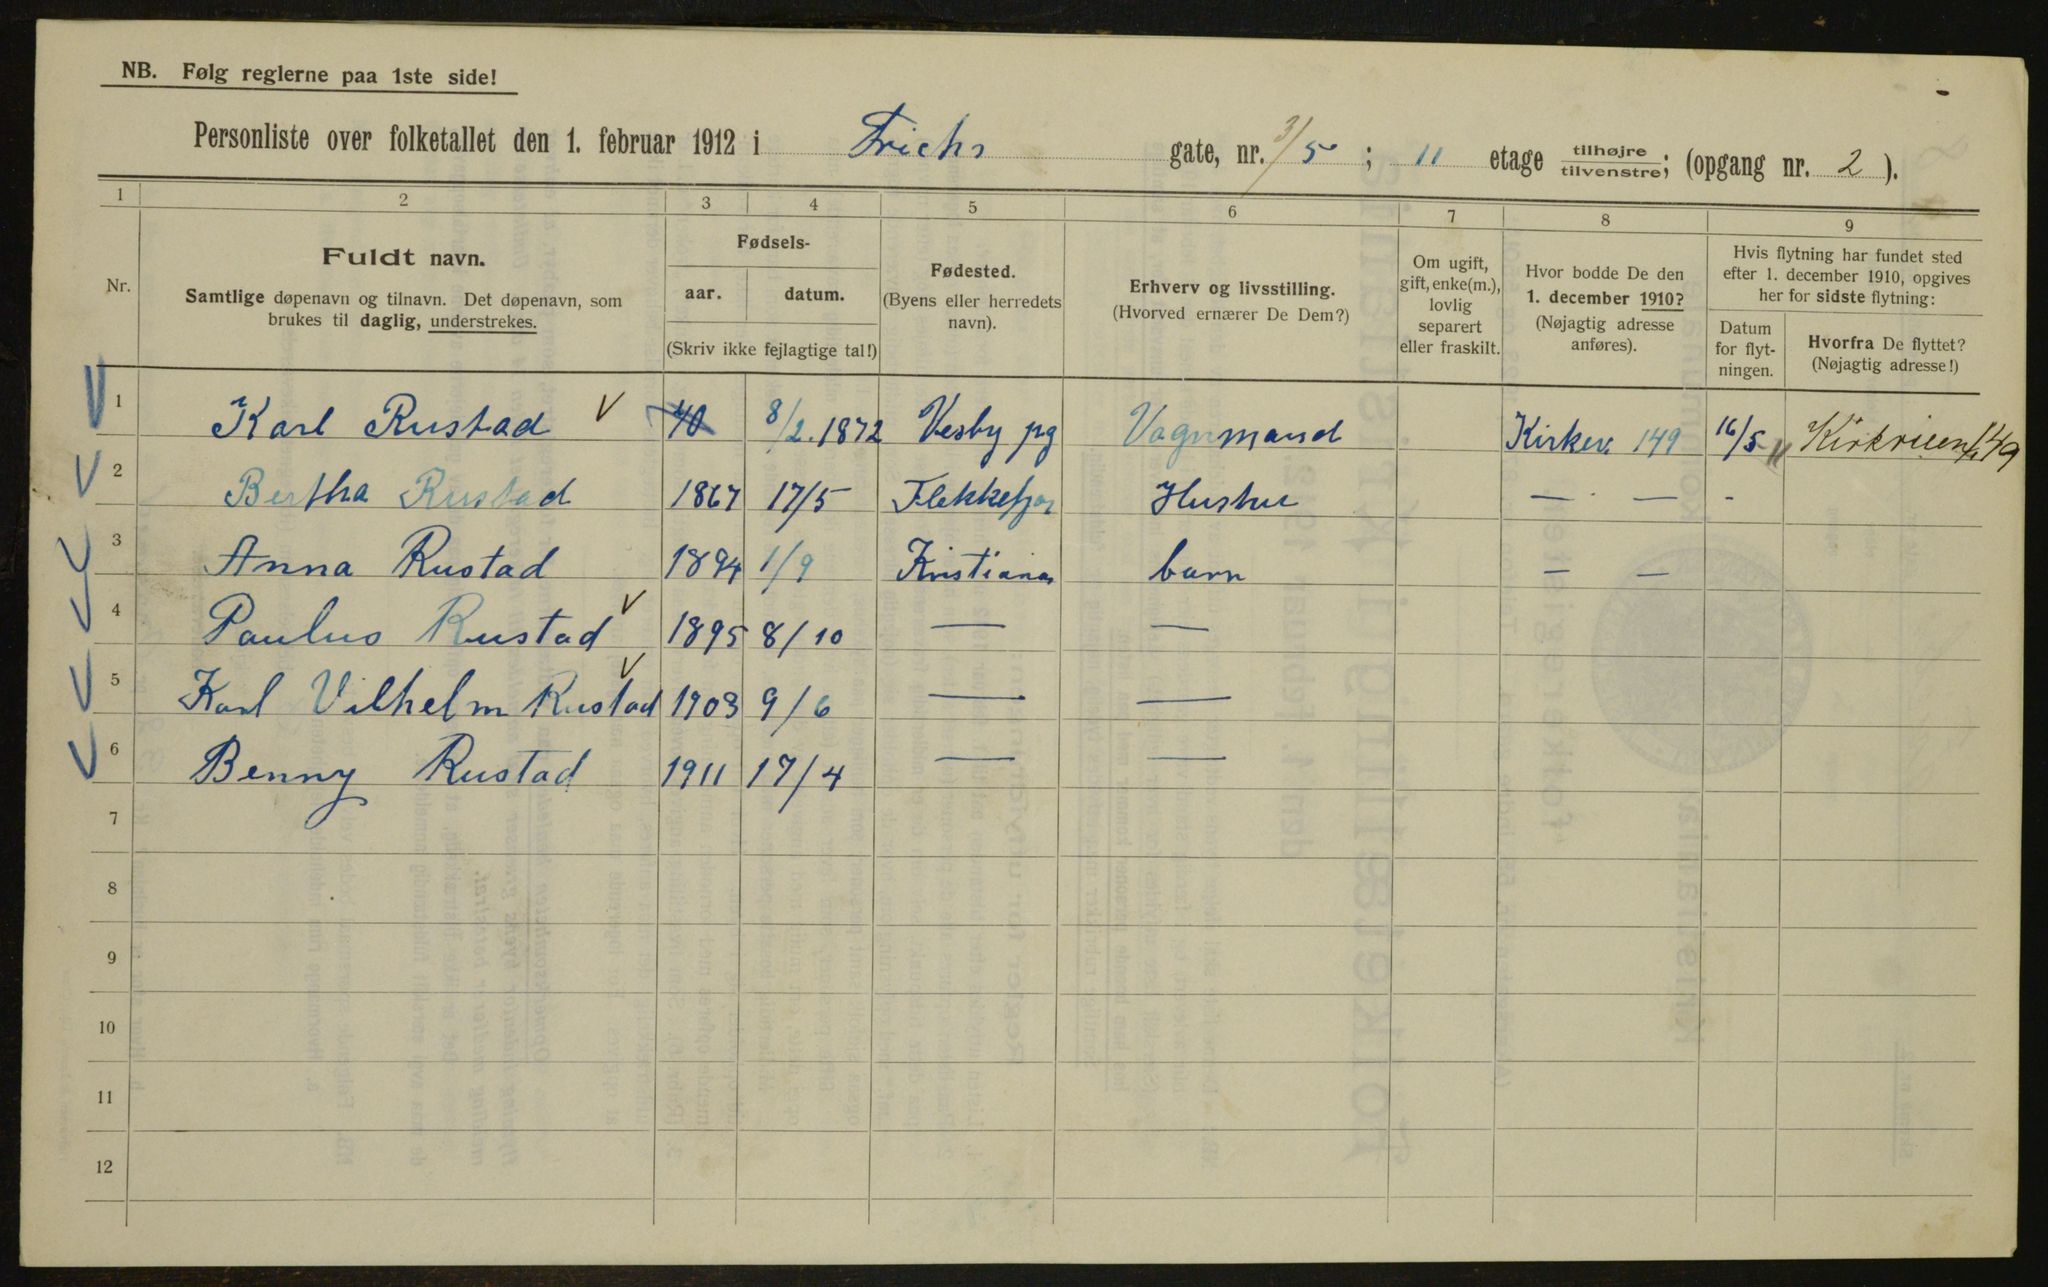 NB. Følg reglerne paa 1ste side!
Personliste over folketallet den 1. februar 1912 i Frichs gate, nr. 3/5 ; 11 etage tilhøjre tilvenstre; (opgang nr. 2 ).
1 2 3 4 5 6 7 8 9
Nr.
Fuldt navn.
Samtlige døpenavn og tilnavn. Det døpenavn, som
brukes til daglig, understrekes.
Fødsels-
aar. datum.
(Skriv ikke fejlagtige tal!)
Fødested.
(Byens eller herredets
navn).
Erhverv og livsstilling.
(Hvorved ernærer De Dem?)
Om ugift,
gift, enke(m.),
lovlig
separert
eller fraskilt.
Hvor bodde De den
1. december 1910?
(Nøjagtig adresse
anføres).
Hvis flytning har fundet sted
efter 1. december 1910, opgives
her for sidste flytning:
Datum
for flyt-
ningen.
Hvorfra De flyttet?
(Nøjagtig adresse!)
1 Karl Rustad 40 8/2 . 1872 Vesby pg Vognmand Kirkev. 149 16/5 11 149
2 Bertha Rustad 1867 17/5 Flekkefjor Hustru — — -
3 Anna Rustad 1894 1/9 Kristiania barn — —
4 Paulus Rustad 1895 8/10 — —
5 Karl Vilhelm Rustad 1903 9/6 — —
6 Benny Rustad 1911 17/4 — —
7
8
9
10
11
12